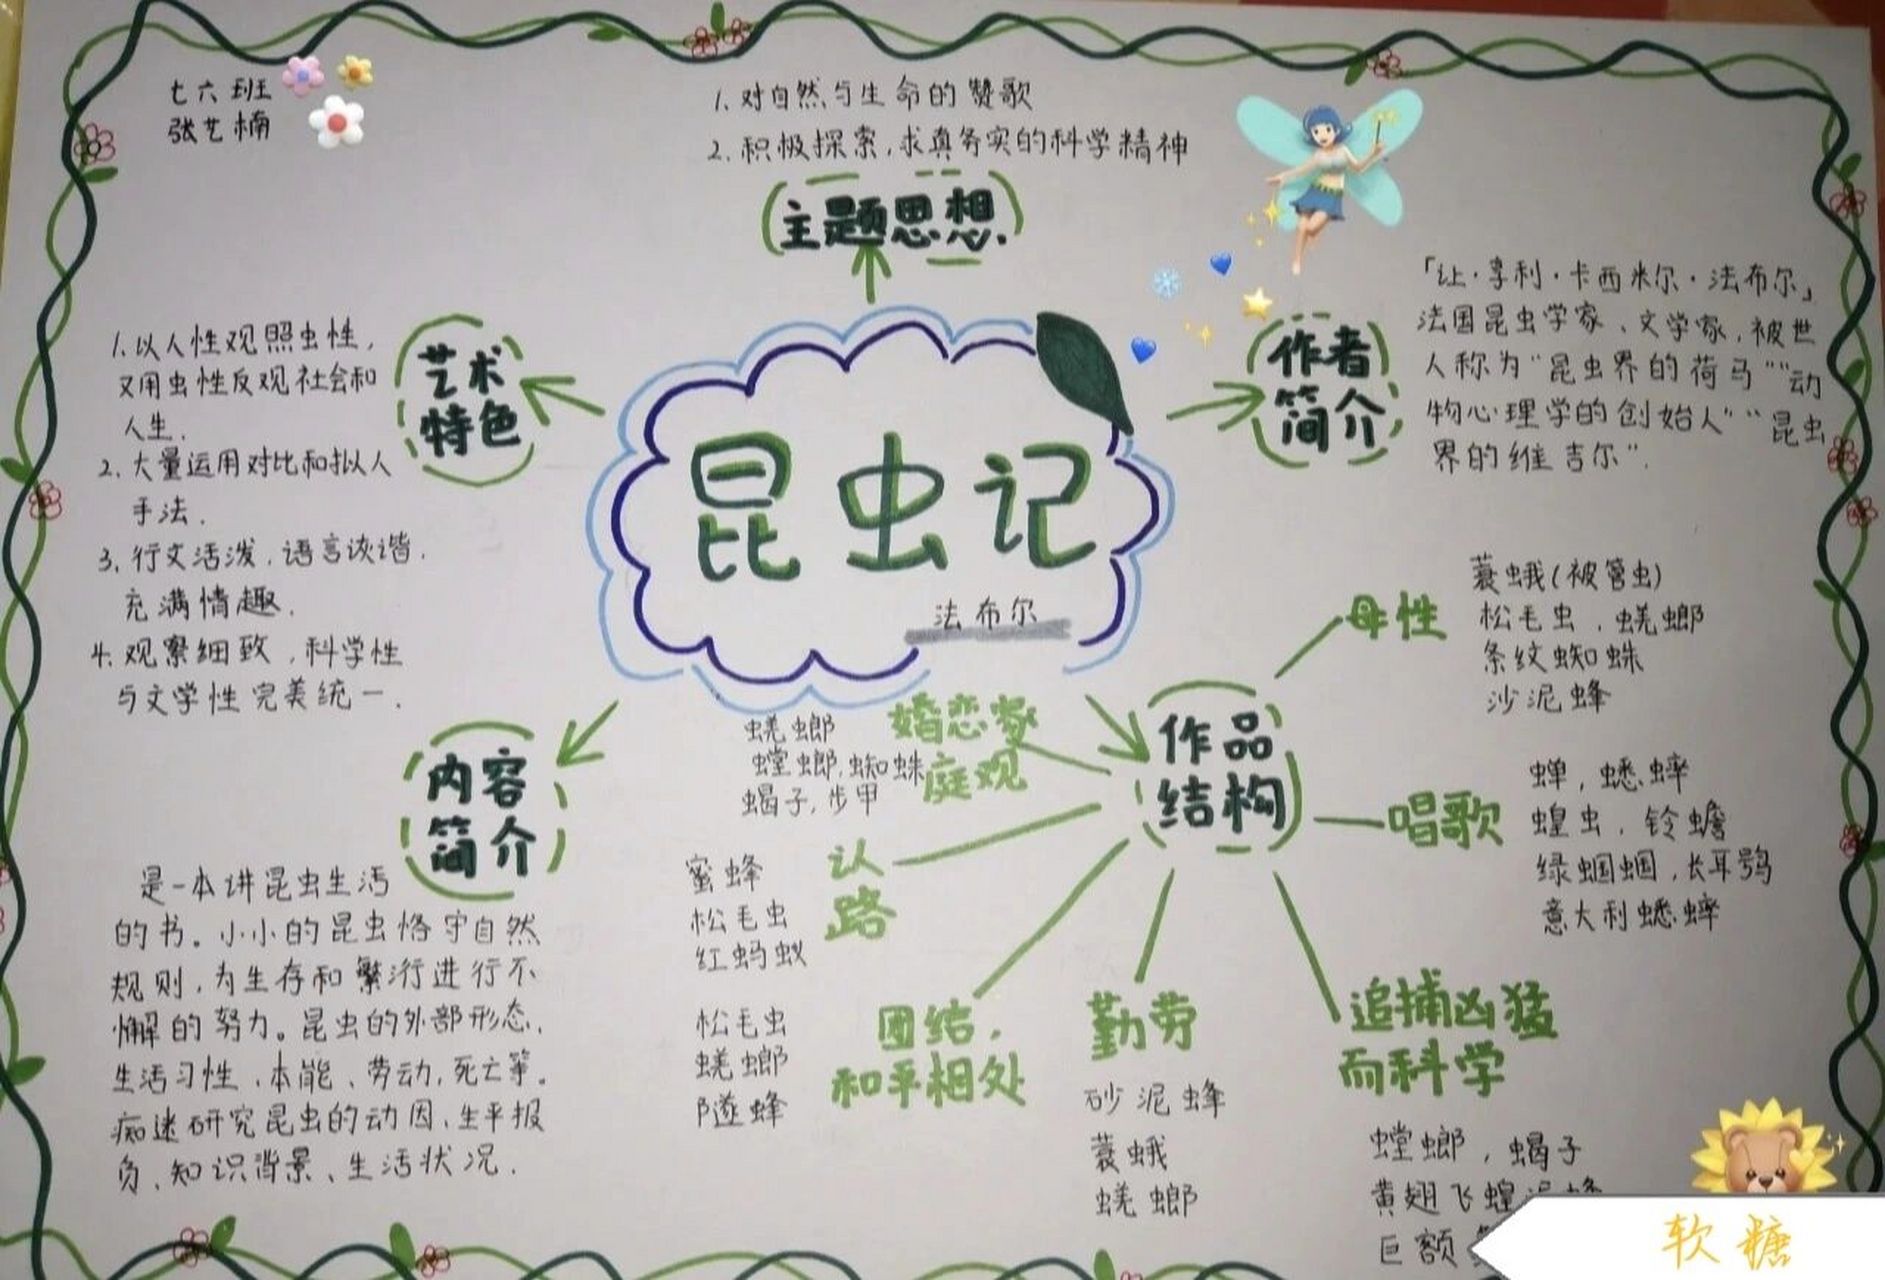 七六班
张艺楠
1.对自然与生命的赞歌
2.积极探索,求真务实的科学精神
主题思想.
昆虫记
法布尔
艺术
特色
1.以人性观照虫性,
又用虫性反观社会和
人生.
2.大量运用对比和拟人
手法.
3.行文活泼,语言诙谐.
充满情趣.
4.观察细致,科学性
与文学性完美统一.
作者
简介
「让·亨利·卡西米尔·法布尔」
法国昆虫学家、文学家,被世
人称为“昆虫界的荷马”“动
物心理学的创始人”“昆虫
界的维吉尔”.
内容
简介
是一本讲昆虫生活
的书。小小的昆虫恪守自然
规则,为生存和繁洐进行不
懈的努力。昆虫的外部形态、
生活习性、本能、劳动,死亡等。
痴迷研究昆虫的动因、生平报
负、知识背景、生活状况.
作品
结构
母性
蓑蛾(被管虫)
松毛虫,蜣螂
条纹蜘蛛
沙泥蜂
唱歌
蝉,蟋蟀
蝗虫,铃蟾
绿蝈蝈,长耳鸮
意大利蟋蟀
追捕凶猛
而科学
螳螂,蝎子
黄翅飞蝗
巨额
勤劳
砂泥蜂
蓑蛾
蜣螂
团结,
和平相处
松毛虫
蜣螂
隧蜂
认
路
蜜蜂
松毛虫
红蚂蚁
婚恋家
庭观
蜣螂
螳螂,蜘蛛
蝎子,步甲
软糖